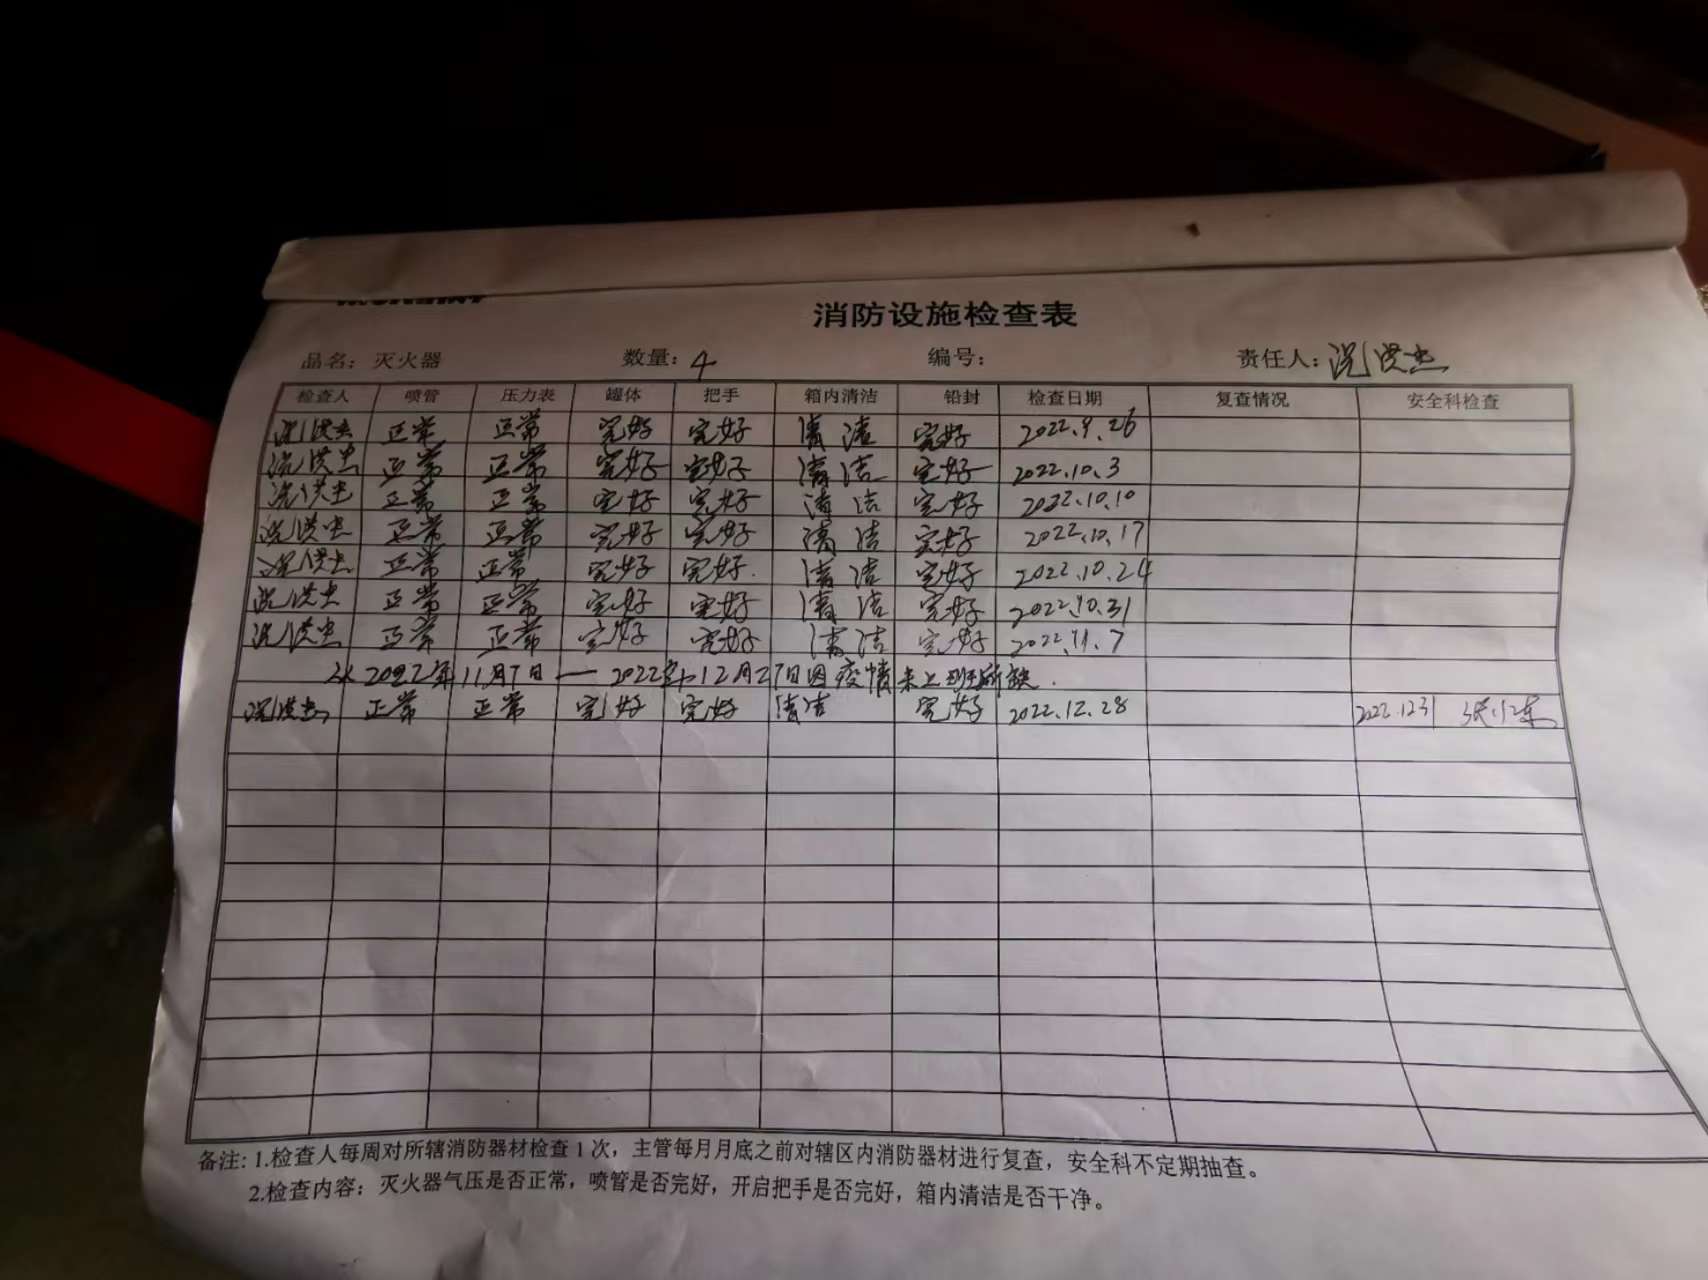 消防设施检查表
品名：灭火器 数量：4 编号： 责任人：
检查人 喷管 压力表 罐体 把手 箱内清洁 铅封 检查日期 复查情况 安全科检查
正常 正常 完好 完好 清洁 完好 2022.9.26
正常 正常 完好 完好 清洁 完好 2022.10.3
正常 正常 完好 完好 清洁 完好 2022.10.10
正常 正常 完好 完好 清洁 完好 2022.10.17
正常 正常 完好 完好 清洁 完好 2022.10.24
正常 正常 完好 完好 清洁 完好 2022.10.31
正常 正常 完好 完好 清洁 完好 2022.11.7
从2022年11月7日—2022年12月27日因疫情未上班所缺.
正常 正常 完好 完好 清洁 完好 2022.12.28 2022.12.31
备注：1.检查人每周对所辖消防器材检查1次，主管每月月底之前对辖区内消防器材进行复查，安全科不定期抽查。
2.检查内容：灭火器气压是否正常，喷管是否完好，开启把手是否完好，箱内清洁是否干净。